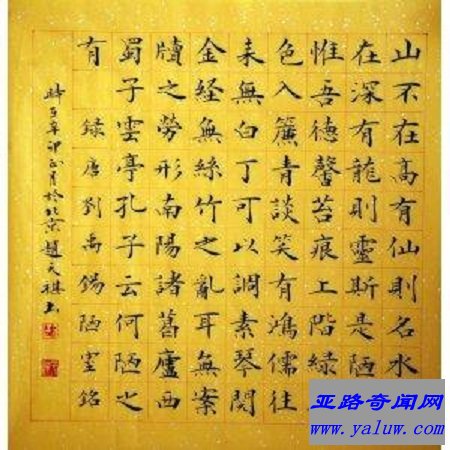 山不在高有仙則名水
在深有龍則靈斯是陋
惟吾德馨苔痕上階綠
色入簾青談笑有鴻儒往
耒無白丁可以調素琴閱
金経無絲竹之亂耳無案
牘之勞形南陽諸葛廬西
蜀子雲亭孔子云何陋之
有 録唐劉禹錫陋室銘
時在辛卯正月於北京趙天祺书
亚路奇闻网
www.yaluw.com